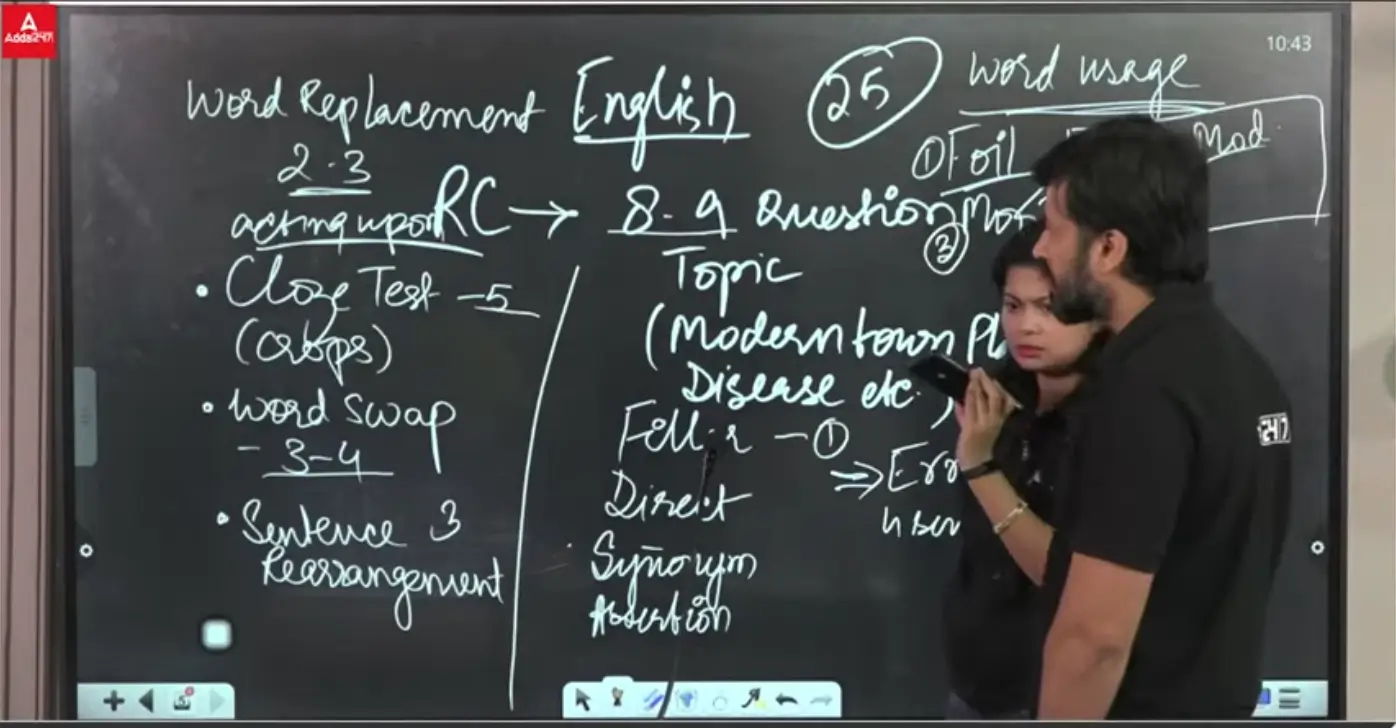 Adda247
10:43
Word Replacement
2-3
acting upon
English
25
word usage
① Foil
Mod
RC → 8-9 Question
③
Topic
(Modern town Pl
Disease etc.)
Filler - ①
Direct
Synonym
Assertion
⇒ Err
• Cloze Test - 5
(Crops)
• Word Swap
- 3-4
• Sentence 3
Rearrangement
247